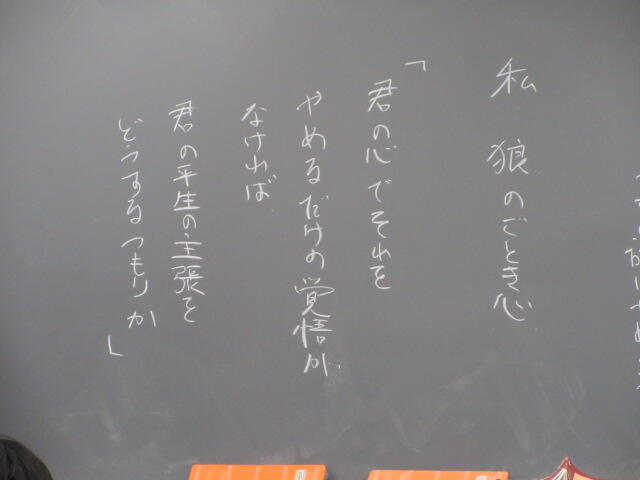 私 狼のごとき心
「君の心でそれを
やめるだけの覚悟が、
なければ
君の平生の主張を
どうするつもりか」